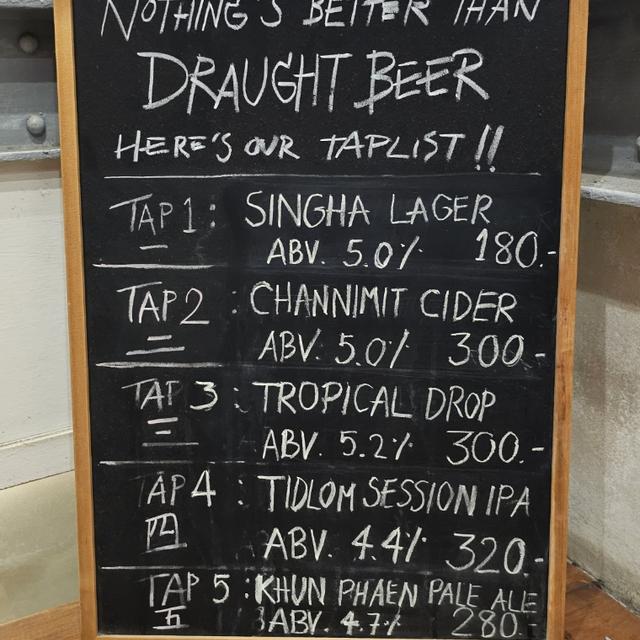 NOTHING'S BETTER THAN
DRAUGHT BEER
HERE'S OUR TAPLIST !!
TAP 1 : SINGHA LAGER
一 ABV. 5.0% 180.-
TAP 2 : CHANNIMIT CIDER
二 ABV. 5.0% 300.-
TAP 3 : TROPICAL DROP
三 ABV. 5.2% 300.-
TAP 4 : TIDLOM SESSION IPA
四 ABV. 4.4% 320.-
TAP 5 : KHUN PHAEN PALE ALE
五 ABV. 4.7% 280.-